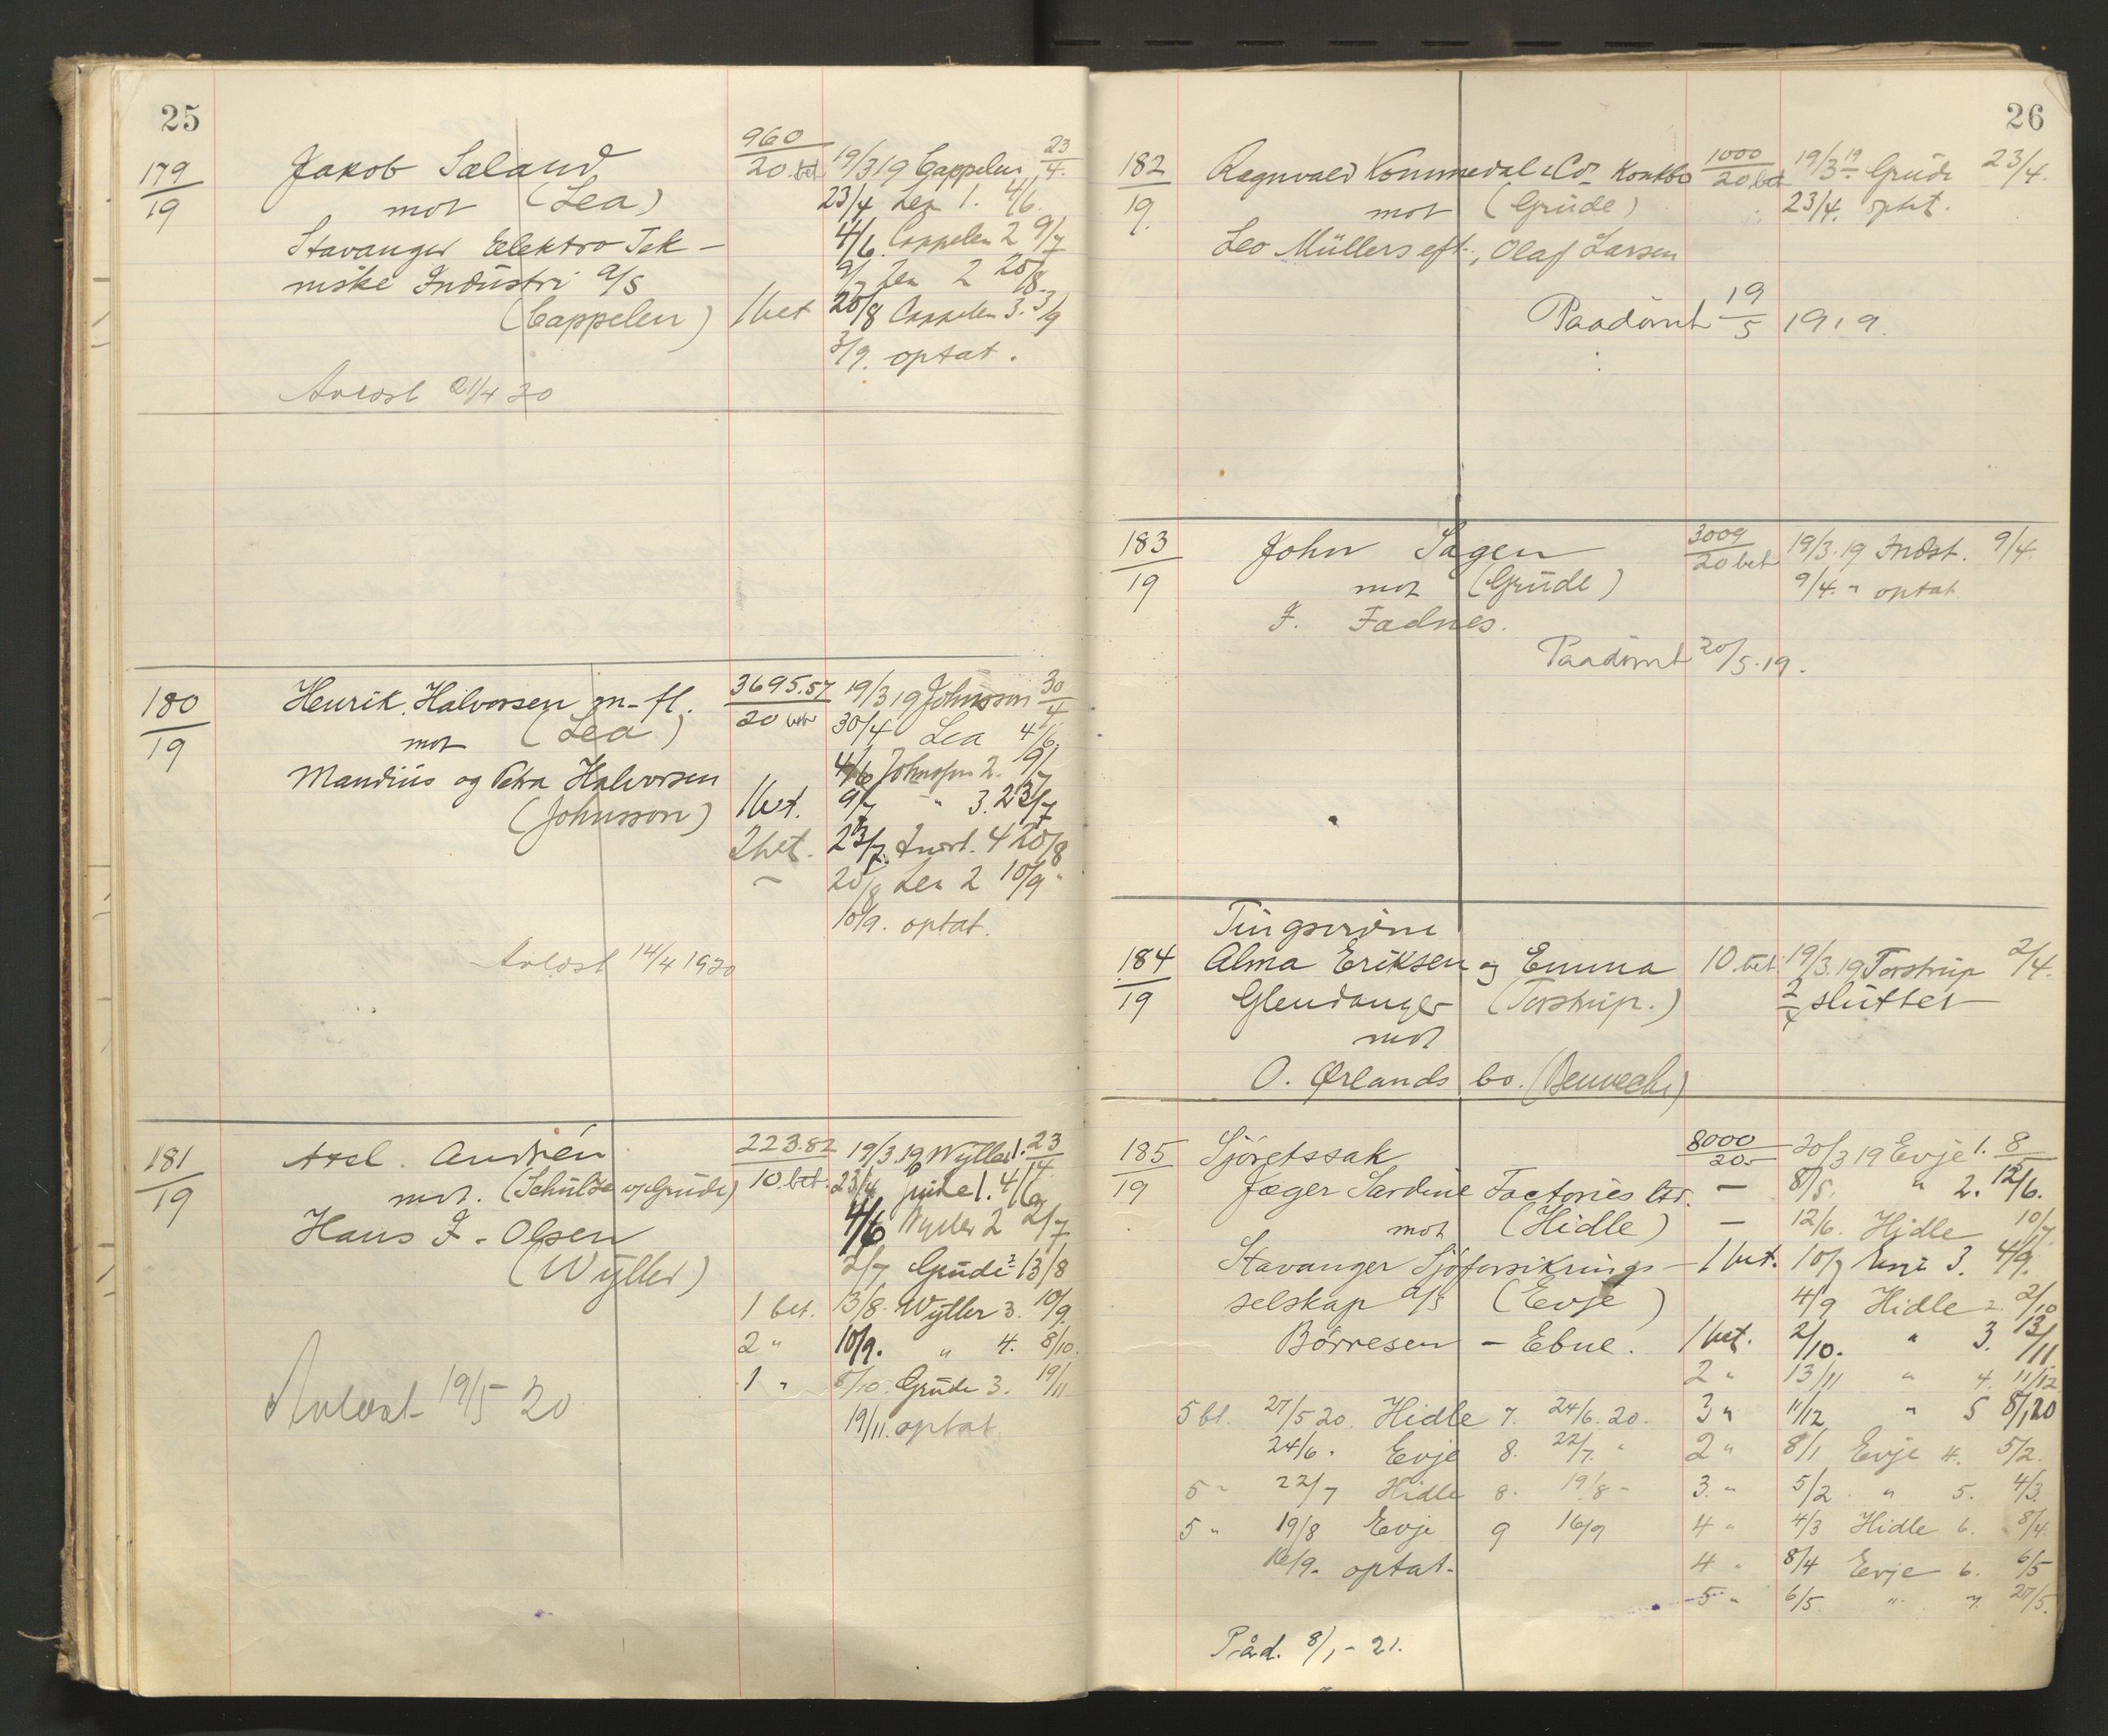 25
179/19
Jakob Sæland
960/20 bet
19/3 19 Cappelen 23/4
mot (Lea)
23/4 Lea 1. 4/6
Stavanger Elektro Tek-
4/6 Cappelen 2 9/7
niske Industri a/s
9/7 Lea 2 20/8
(Cappelen)
1 bet 20/8 Cappelen 3. 3/9
3/9. optat.
Avlöst 21/4 20
180/19
Henrik Halvorsen m. fl.
3695.57/20 bet
19/3 19 Johnsson 30/4
mot (Lea)
30/4 Lea 4/6
4/6 Johnsson 2. 9/7
Mandius og Petra Halvorsen
(Johnsson)
1 bet. 9/7 " 3. 23/7
2 bet. 23/7 4 20/8
- 20/8 Lea 2 10/9 "
10/9. optat.
Avlöst 14/4 1920
181/19
Axel. Andrén
223.82/10 bet.
19/3 19 Wyller 1. 23/4
mot. (Schulze og Grude)
23/4 Grude 1. 4/6
Hans J. Olsen
4/6 Wyller 2 2/7
(Wyller)
2/7 Grude 2 13/8
1 bet. 13/8. Wyller 3. 10/9
2 " 10/9. " 4. 8/10.
1 " 8/10. Grude 3. 19/11
19/11. optat.
Avlöst 19/5 20
26
182/19.
Ragnvald Kommedal & Co Konkbo
1000/20 bet
19/3 19 Grude 23/4.
mot (Grude)
23/4. optat.
Leo Müllers eft., Olaf Larsen
Paadömt 19/5 1919.
183/19
John Sagen
3009/20 bet
19/3. 19 Indst. 9/4.
mot (Grude)
9/4. " optat.
J. Fadnes.
Paadömt 20/5. 19.
Tingsvidne
184/19
Alma Eriksen og Emma
10. bet.
19/3. 19 Torstrup 2/4.
Glendanger (Torstrup.)
2/4 sluttet
mot
O. Ørlands bo.
185/19
Sjöretssak
8000/20.-
20/3 19 Evje 1. 8/
Jæger Sardine Factories Ltd.
- 8/5. " 2. 12/6.
mot (Hidle)
- 12/6. Hidle 10/7
Stavanger Sjöforsikrings-
1 bet. 10/7 Evje 3. 4/9.
selskap a/s (Evje)
4/9 Hidle 2. 2/10
Börresen - Ebne.
1 bet. 2/10. " 3. 13/11
2 " 13/11 " 4. 11/12
5 bt. 27/5 20. Hidle 7. 24/6. 20.
3 " 11/12 " 5 8/1 20
24/6. Evje 8. 22/7. "
2 " 8/1 Evje 4. 5/2.
5 " 22/7 Hidle 8. 19/8 "
3. " 5/2 " 5. 4/3.
5 " 19/8 Evje 9 16/9
4 " 4/3 Hidle 6. 8/4.
16/9. optat.
4 " 8/4 Evje 6. 6/5
5 " 6/5. " 7. 27/5.
Påd. 8/1 - 21.